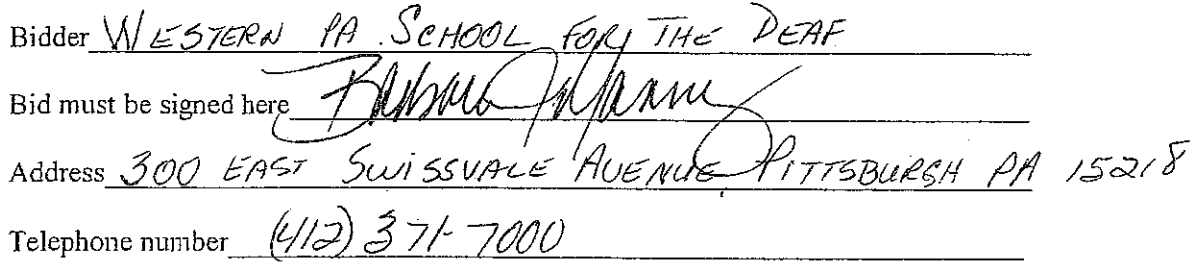 Bidder WESTERN PA. SCHOOL FOR THE DEAF
Bid must be signed here Barbara
Address 300 EAST SWISSVALE AVENUE, PITTSBURGH PA 15218
Telephone number (412) 371-7000